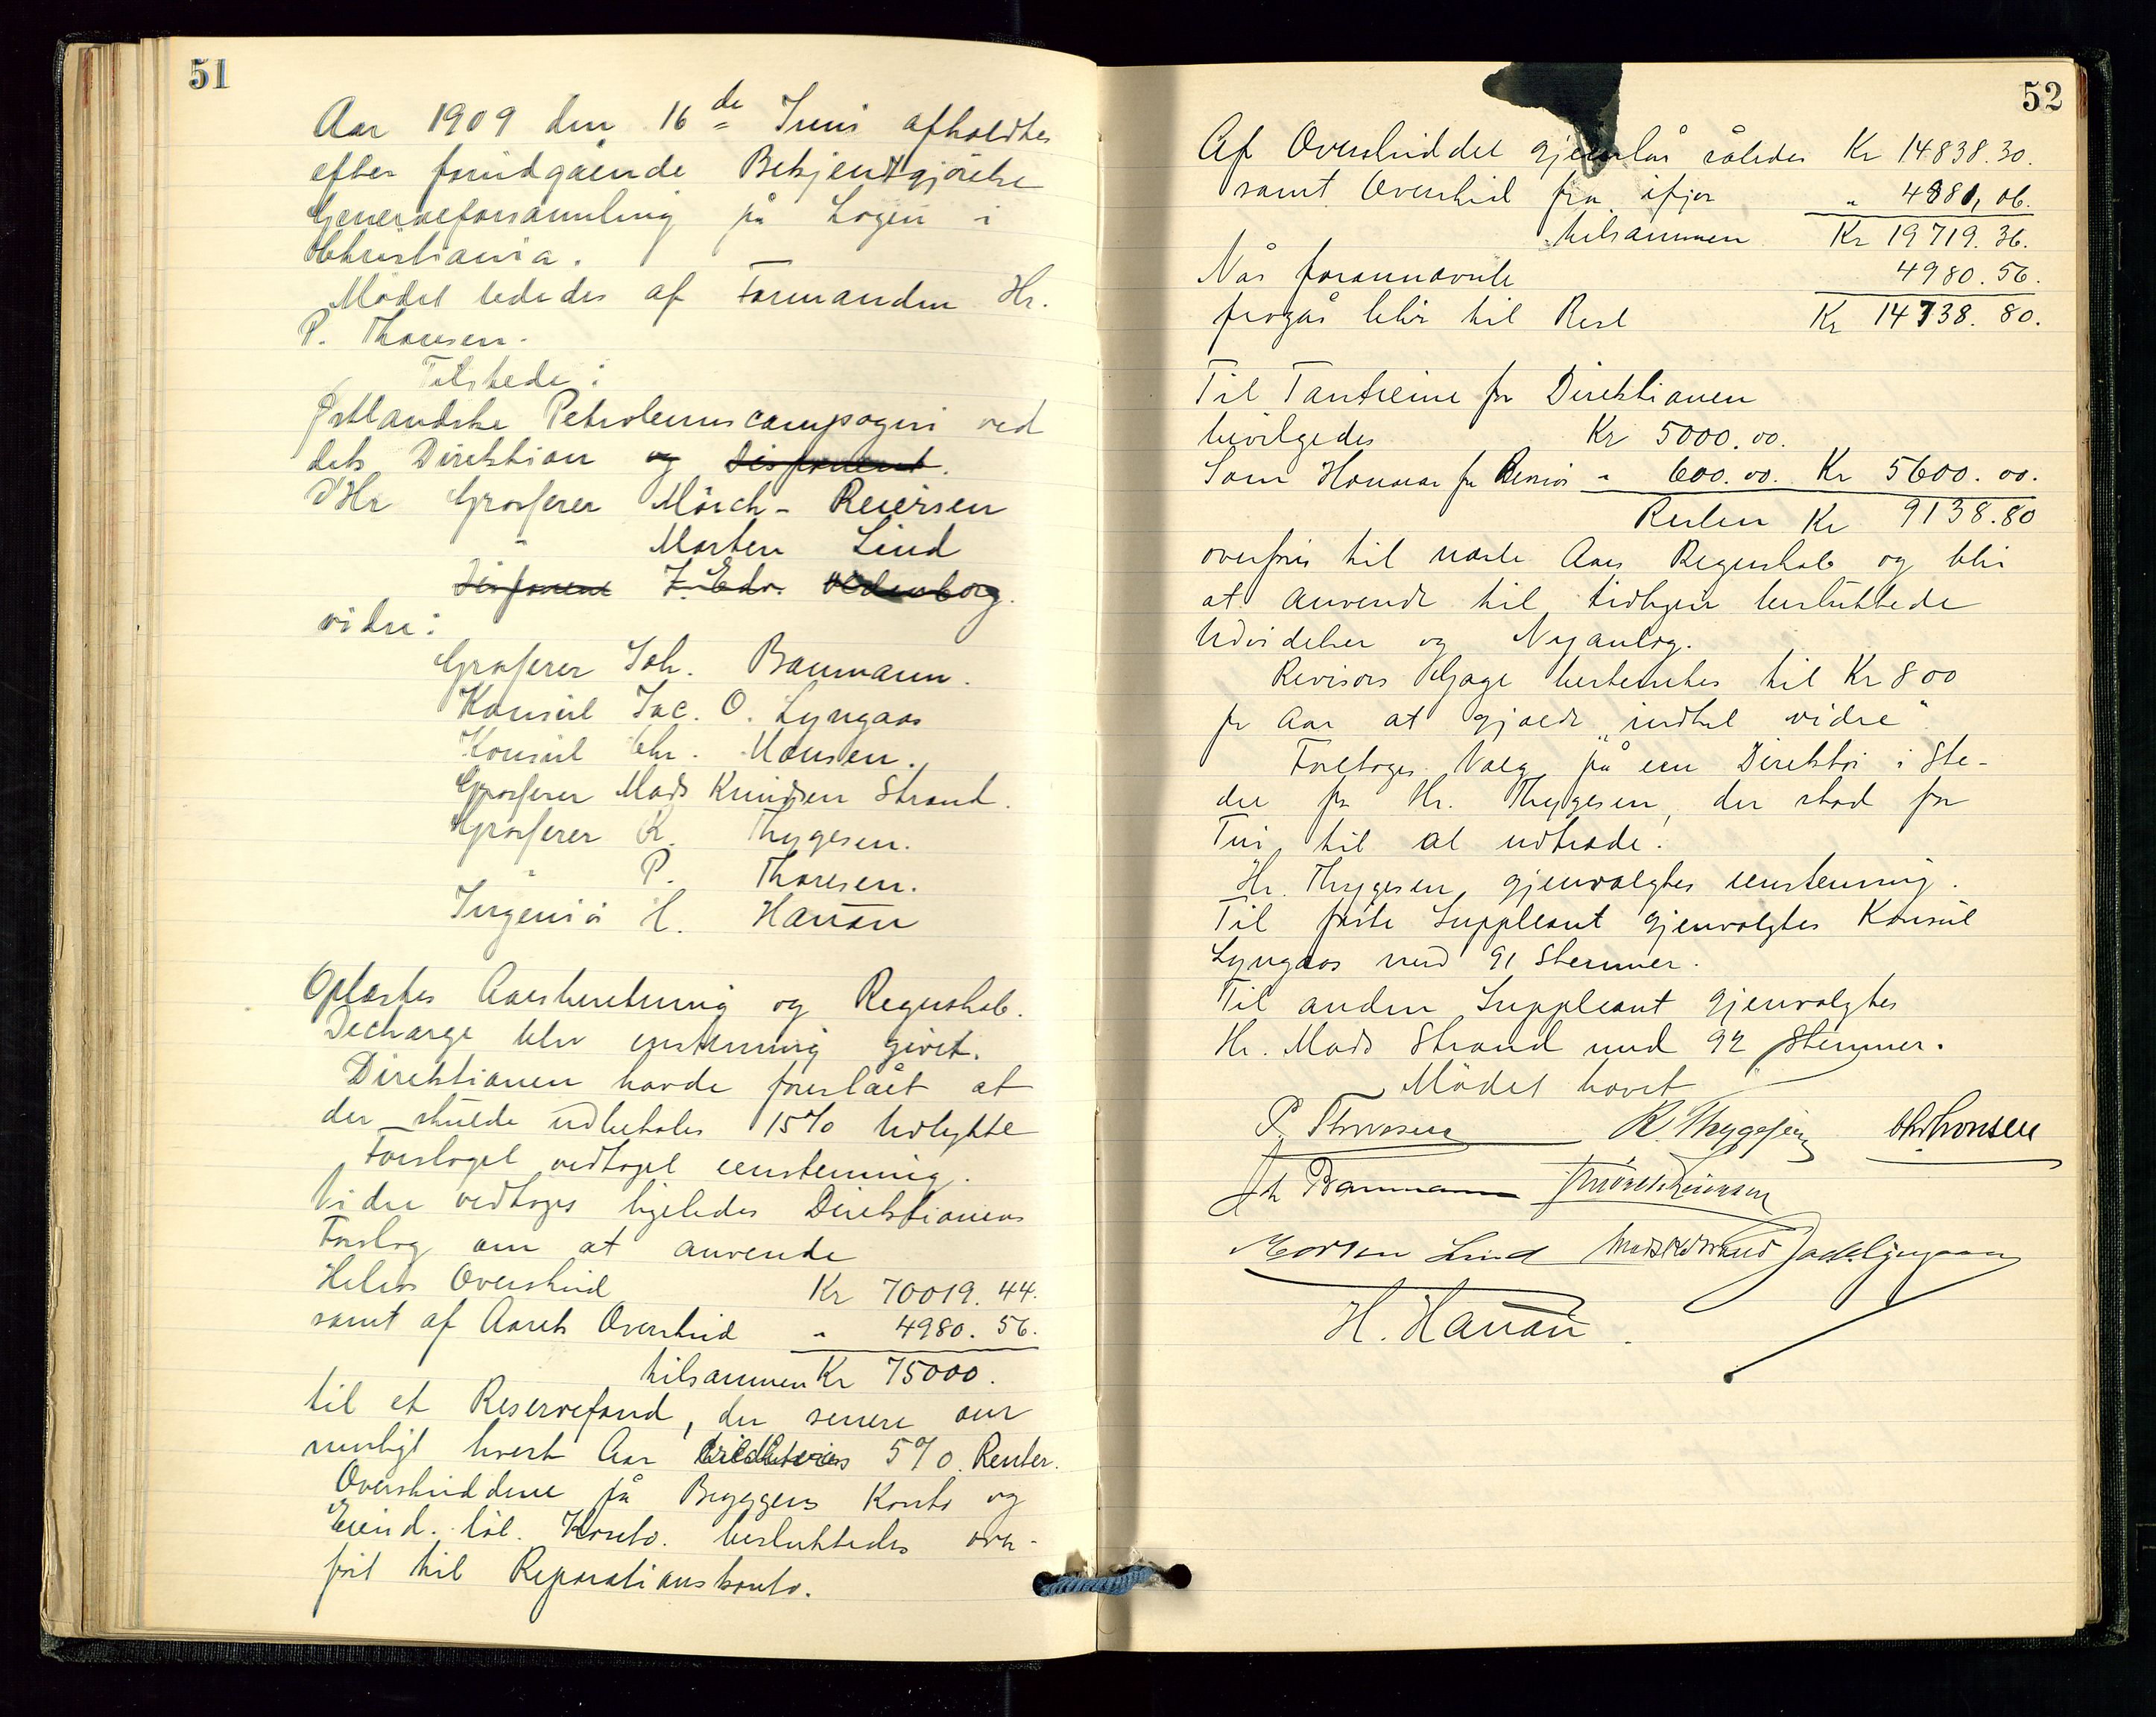 51
Aar 1909 den 16de Juni afholdtes
efter forudgående Bekjentgjörelse
Generalforsamling på Logen i
Christiania.
Mödet lededes af Formanden Hr.
P. Thoresen.
Tilstede:
Østlandske Petroleumscompagni ved
dets Direktion og Disponent.
D'Hr Grosserer Mörch-Reiersen
" Morten Lind
Disponent F. Edv.
vidre:
Grosserer Joh. Baumann.
Konsul Jac. O. Lyngaas
Konsul Chr. Hansen.
Grosserer Mads Knudsen Strand.
Grosserer R. Thygesen.
" P. Thoresen.
Ingeniör H. Hanau
Oplæstes Aarsberetning og Regnskab.
Decharge blev enstemmig givet.
Direktionen havde foreslået at
der skulde udbetales 15% Udbytte
Forslaget vedtaget eenstemmig.
Vidre vedtoges ligeledes Direktionens
Forslag om at anvende
Overskud Kr 70019.44.
samt af Aarets Overskud " 4980.56.
tilsammen Kr 75000.
til et Reservefond, der senere om
muligt hvert Aar 5% Renter.
Overskuddene på Bryggens Konto og
Eiend. Konto. besluttedes over-
fört til Reparationskonto.
52
Af Overskuddet gjenstår således Kr 14838.30.
samt Overskud fra ifjor " 4881,06.
tilsammen Kr 19719.36.
Når forannævnte 4980.56.
fragår blir til Rest Kr 14738.80.
Til Tantieme for Direktionen
bevilgedes Kr 5000.00.
Som Honorar for Revisor " 600.00. Kr 5600.00.
Resten Kr 9138.80
overföres til næste Aars Regnskab og blir
at anvende til tidligere besluttede
Udvidelser og Nyanlæg.
Revisors Gage bestemtes til Kr 800
pr Aar at gjælde "indtil vidre"
Foretoges Valg på een Direktör i Ste-
det for Hr. Thygesen, der stod for
Tur til at udtræde.
Hr. Thygesen gjenvalgtes eenstemmig.
Til förste Suppleant gjenvalgtes Konsul
Lyngaas med 91 Stemmer.
Til anden Suppleant gjenvalgtes
Hr. Mads Strand med 92 Stemmer.
Mödet hævet
P. Thoresen R. Thygesen Chr Hansen
Joh Baumann Mörch Reiersen
Morten Lind Mads K Strand Jac O Lyngaas
H. Hanau.